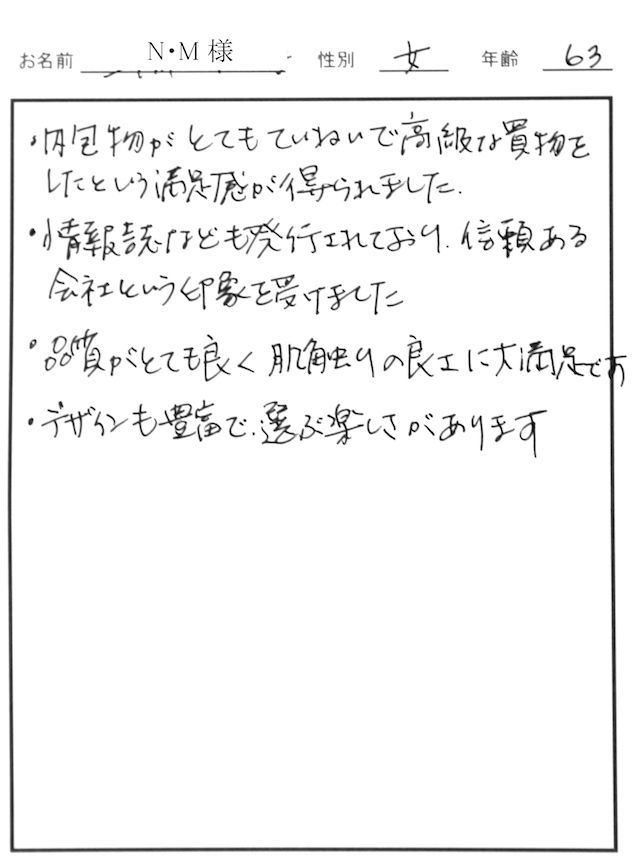 お名前 N・M 様 性別 女 年齢 63
・内包物がとてもていねいで高級な買物を
したという満足感が得られました.
・情報誌なども発行されており、信頼ある
会社という印象を受けました
・品質がとても良く肌触りの良さに大満足です
・デザインも豊富で、選ぶ楽しさがあります